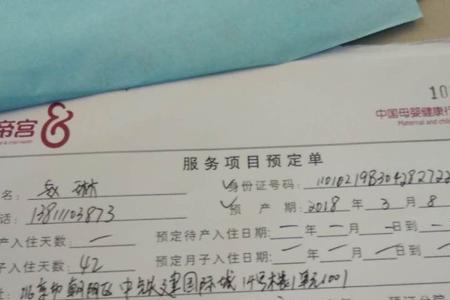 10
帝宫
中国母婴健康行
Maternal and chil
服务项目预定单
名： 赵琳 身份证号码：
话： 13811103873 预 产 期：2018 年 3 月 8
产入住天数： 一 预定待产入住日期：一 年 一 月 一 日到
子入住天数： 42 预定月子入住日期：一 年 一 月 一 日到
北京市朝阳区中铁建国际城14号楼1单元1001